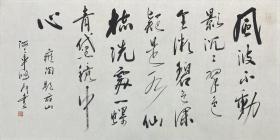 風波不動
影沉沉翠色
全微碧色深
疑是水仙
梳洗處一螺
青黛鏡中
心
雍陶題君山
書